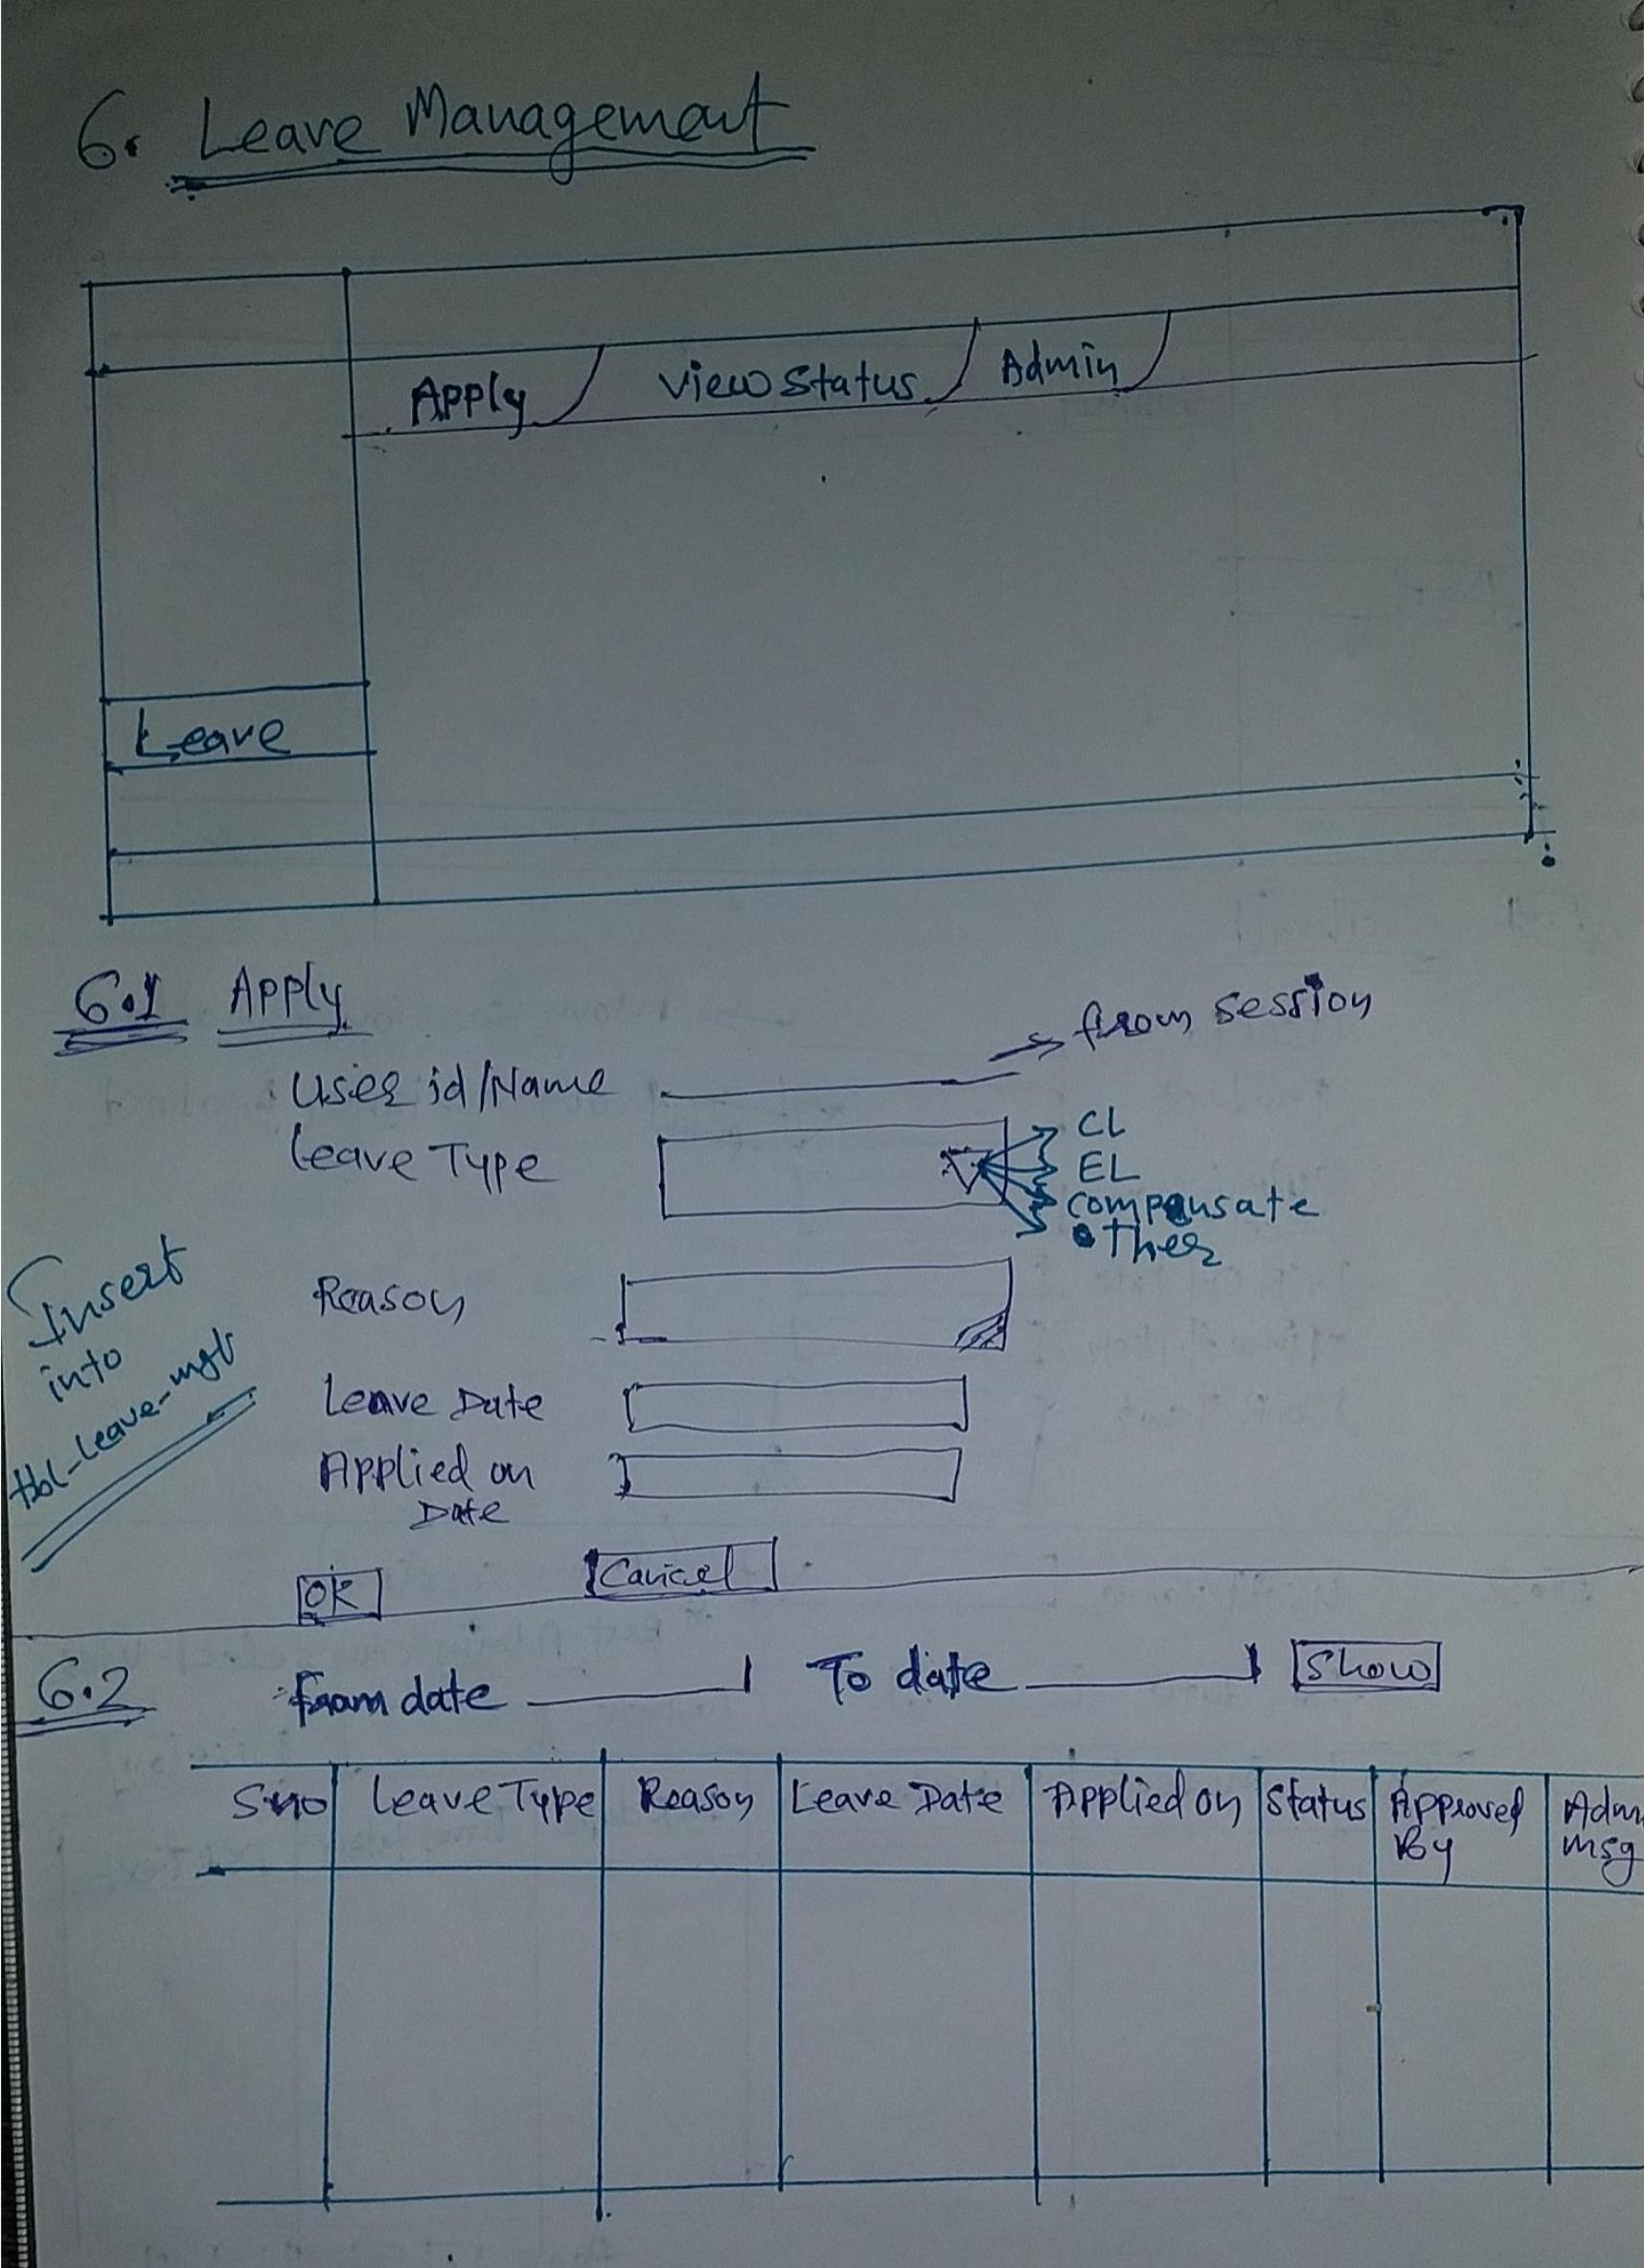 6. Leave Management
Apply
View Status
Admin
Leave
6.1 Apply
User id/Name
from session
Leave Type
CL
EL
compensate
other
Insert
into
tbl-leave-mgt
Reason
Leave Date
Applied on
Date
OK
Cancel
6.2 From date To date Show
Sno Leave Type Reason Leave Date Applied on Status Approved
By
Adm
msg